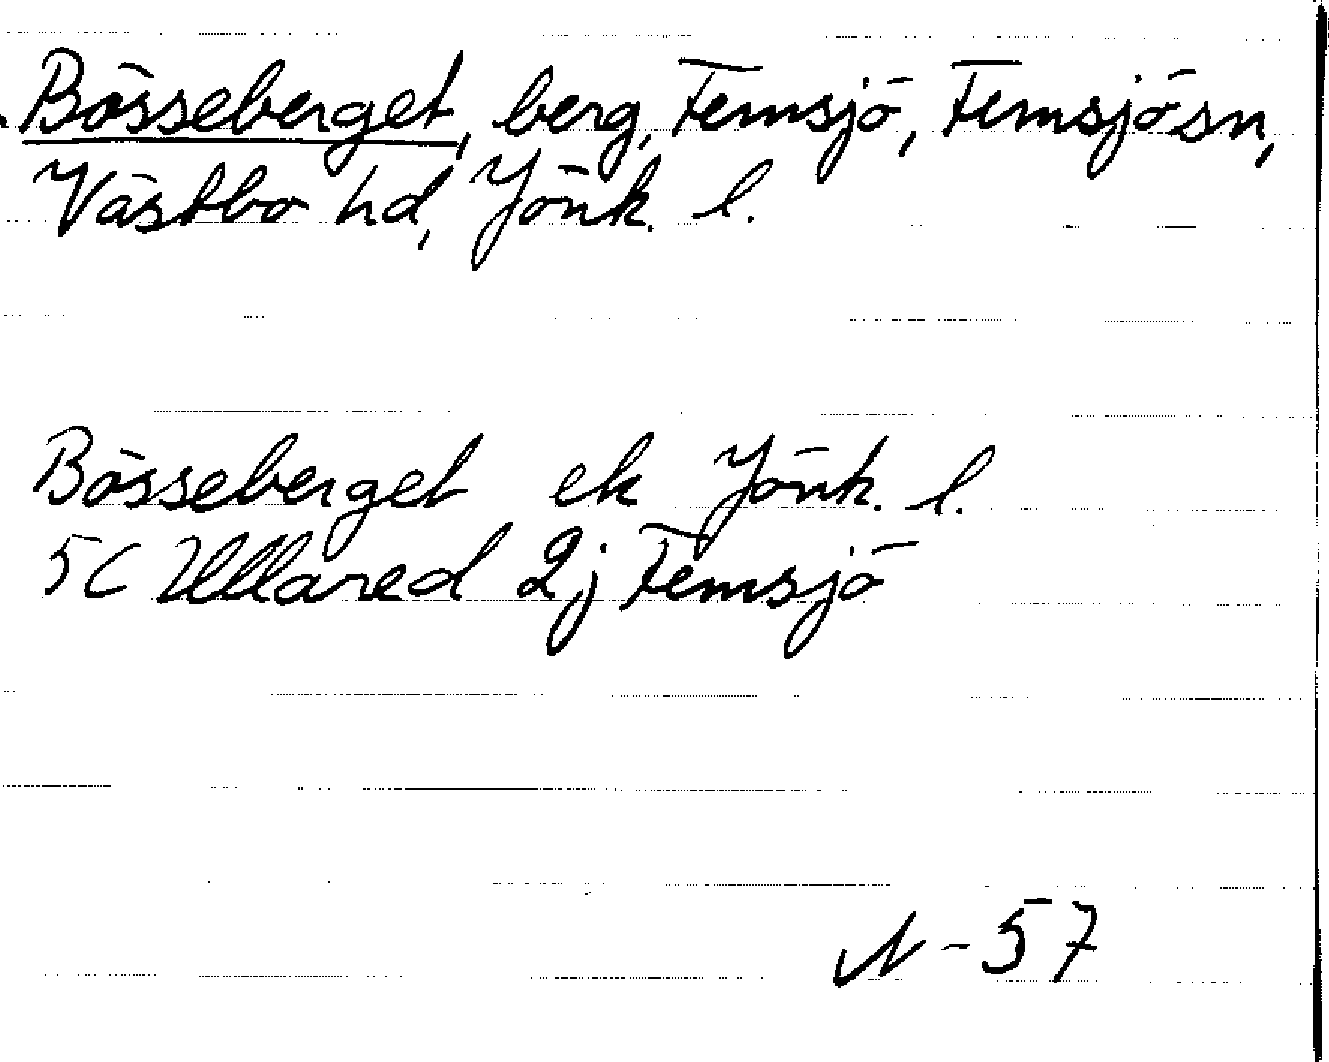 Bösseberget, berg, Femsjö, Femsjö sn,
Västbo hd, Jönk. l.
Bösseberget ek Jönk. l.
5C Ullared 2j Femsjö
N-57